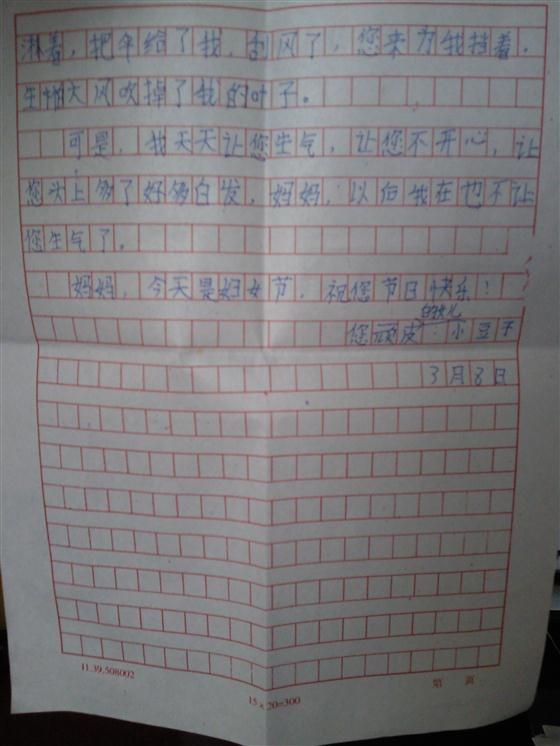 淋着，把伞给了我，刮风了，您来为我挡着，
生怕大风吹掉了我的叶子。
可是，我天天让您生气，让您不开心，让
您头上多了好多白发，妈妈，以后我在也不让
您生气了。
妈妈，今天是妇女节，祝您节日快乐！
的孩儿
您顽皮：小豆子
3月8日
11.39.508002
15×20=300
第 页